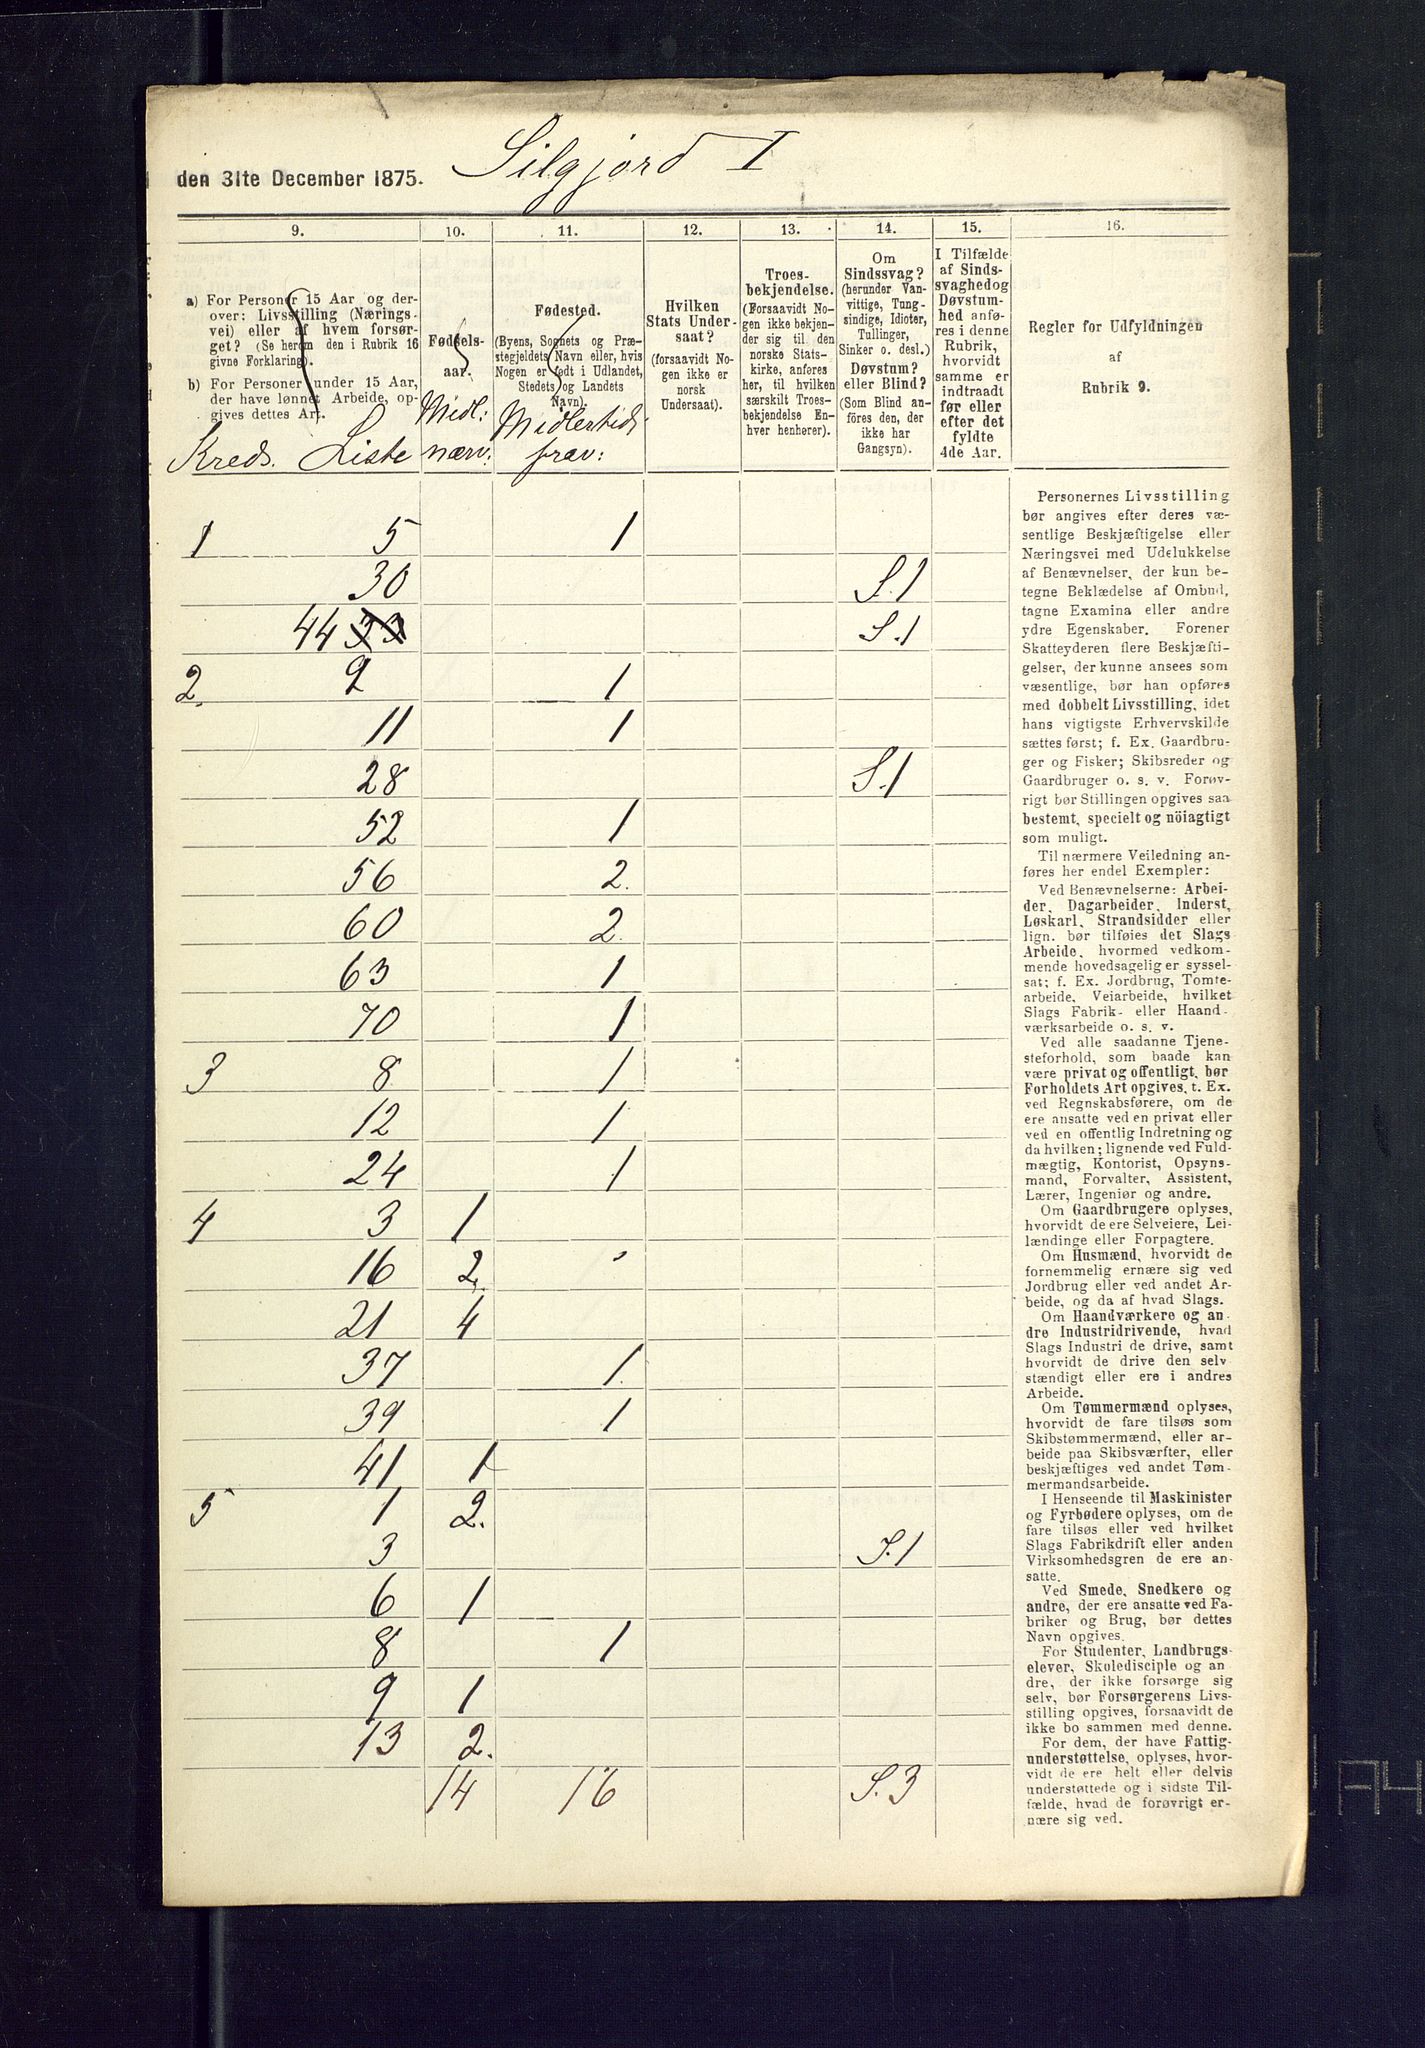 Silgjord I
den 31te December 1875.
9. 10. 11. 12. 13. 14. 15. 16.
a) For Personer 15 Aar og der-
over: Livsstilling (Nærings-
vei) eller af hvem forsør-
get? (Se herom den i Rubrik 16
givne Forklaring).
b) For Personer under 15 Aar,
der have lønnet Arbeide, op-
gives dettes Art.
Fødsels-
aar.
Fødested.
(Byens, Sognets og Præ-
stegjeldets Navn eller, hvis
Nogen er født i Udlandet,
Stedets og Landets
Navn).
Hvilken
Stats Under-
saat?
(forsaavidt No-
gen ikke er
norsk
Undersaat).
Troes-
bekjendelse.
(Forsaavidt No-
gen ikke bekjen-
der sig til den
norske Stats-
kirke, anføres
her, til hvilken
særskilt Troes-
bekjendelse En-
hver henhører).
Om
Sindssvag?
(herunder Van-
vittige, Tung-
sindige, Idioter,
Tullinger,
Sinker o. desl.)
Døvstum?
eller Blind?
(Som Blind an-
føres den, der
ikke har
Gangsyn).
I Tilfælde
af Sinds-
svaghed og
Døvstum-
hed anfø-
res i denne
Rubrik,
hvorvidt
samme er
indtraadt
før eller
efter det
fyldte
4de Aar.
Regler for Udfyldningen
af
Rubrik 9.
Kreds. Liste
Midl:
nærv:
Midlertid:
frav:
1 5 1
30 S.1
44 33 S.1
2. 9 1
11 1
28 S.1
52 1
56 2.
60 2.
63 1
70 1
3 8 1
12 1
24 1
4 3 1
16 2.
21 4
37 1.
39 1
41 1
5 1 2.
3 S.1
6 1
8 1
9 1
13 2.
14 16 S.3
Personernes Livsstilling
bør angives efter deres væ-
sentlige Beskjæftigelse eller
Næringsvei med Udelukkelse
af Benævnelser, der kun be-
tegne Beklædelse af Ombud,
tagne Examina eller andre
ydre Egenskaber. Forener
Skatteyderen flere Beskjæfti-
gelser, der kunne ansees som
væsentlige, bør han opføres
med dobbelt Livsstilling, idet
hans vigtigste Erhvervskilde
sættes først; f. Ex. Gaardbru-
ger og Fisker; Skibsreder og
Gaardbruger o. s. v. Forøv-
rigt bør Stillingen opgives saa
bestemt, specielt og nöiagtigt
som muligt.
Til nærmere Veiledning an-
føres her endel Exempler:
Ved Benævnelserne: Arbei-
der, Dagarbeider, Inderst,
Løskarl, Strandsidder eller
lign. bør tilføies det Slags
Arbeide, hvormed vedkom-
mende hovedsagelig er syssel-
sat; f. Ex. Jordbrug, Tomte-
arbeide, Veiarbeide, hvilket
Slags Fabrik- eller Haand-
værksarbeide o. s. v.
Ved alle saadanne Tjene-
steforhold, som baade kan
være privat og offentligt, bør
Forholdets Art opgives, t. Ex.
ved Regnskabsførere, om de
ere ansatte ved en privat eller
ved en offentlig Indretning og
da hvilken; lignende ved Fuld-
mægtig, Kontorist, Opsyns-
mand, Forvalter, Assistent,
Lærer, Ingeniør og andre.
Om Gaardbrugere oplyses,
hvorvidt de ere Selveiere, Lei-
lændinge eller Forpagtere.
Om Husmænd, hvorvidt de
fornemmelig ernære sig ved
Jordbrug eller ved andet Ar-
beide, og da af hvad Slags.
Om Haandværkere og an-
dre Industridrivende, hvad
Slags Industri de drive, samt
hvorvidt de drive den selv
stændigt eller ere i andres
Arbeide.
Om Tømmermænd oplyses,
hvorvidt de fare tilsøs som
Skibstømmermænd, eller ar-
beide paa Skibsværfter, eller
beskjæftiges ved andet Tøm-
mermandsarbeide.
I Henseende til Maskinister
og Fyrbødere oplyses, om de
fare tilsøs eller ved hvilket
Slags Fabrikdrift eller anden
Virksomhedsgren de ere an-
satte.
Ved Smede, Snedkere og
andre, der ere ansatte ved Fa-
briker og Brug, bør dettes
Navn opgives.
For Studenter, Landbrugs-
elever, Skoledisciple og an
dre, der ikke forsørge sig
selv, bør Forsørgerens Livs-
stilling opgives, forsaavidt de
ikke bo sammen med denne.
For dem, der have Fattig-
understøttelse, oplyses, hvor-
vidt de ere helt eller delvis
understøttede og i sidste Til-
fælde, hvad de forøvrigt er-
nære sig ved.
A4